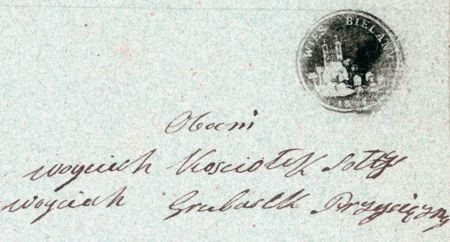 WIEŚ BIELANY
Obecni
Woyciech Kosciołek Sołty
Woyciech Grubasek Przysięzny